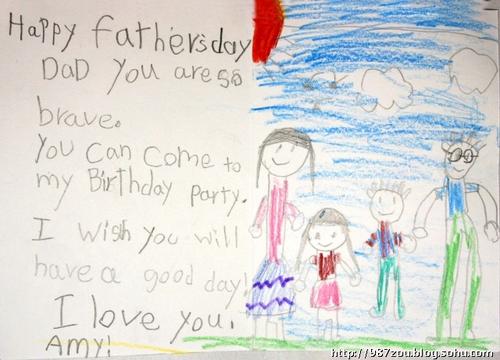 Happy fathersday
DaD you are so
brave.
You can come to
my Birthday party.
I wish you will
have a good day!
I love you.
Amy!
http://987zou.blog.sohu.com